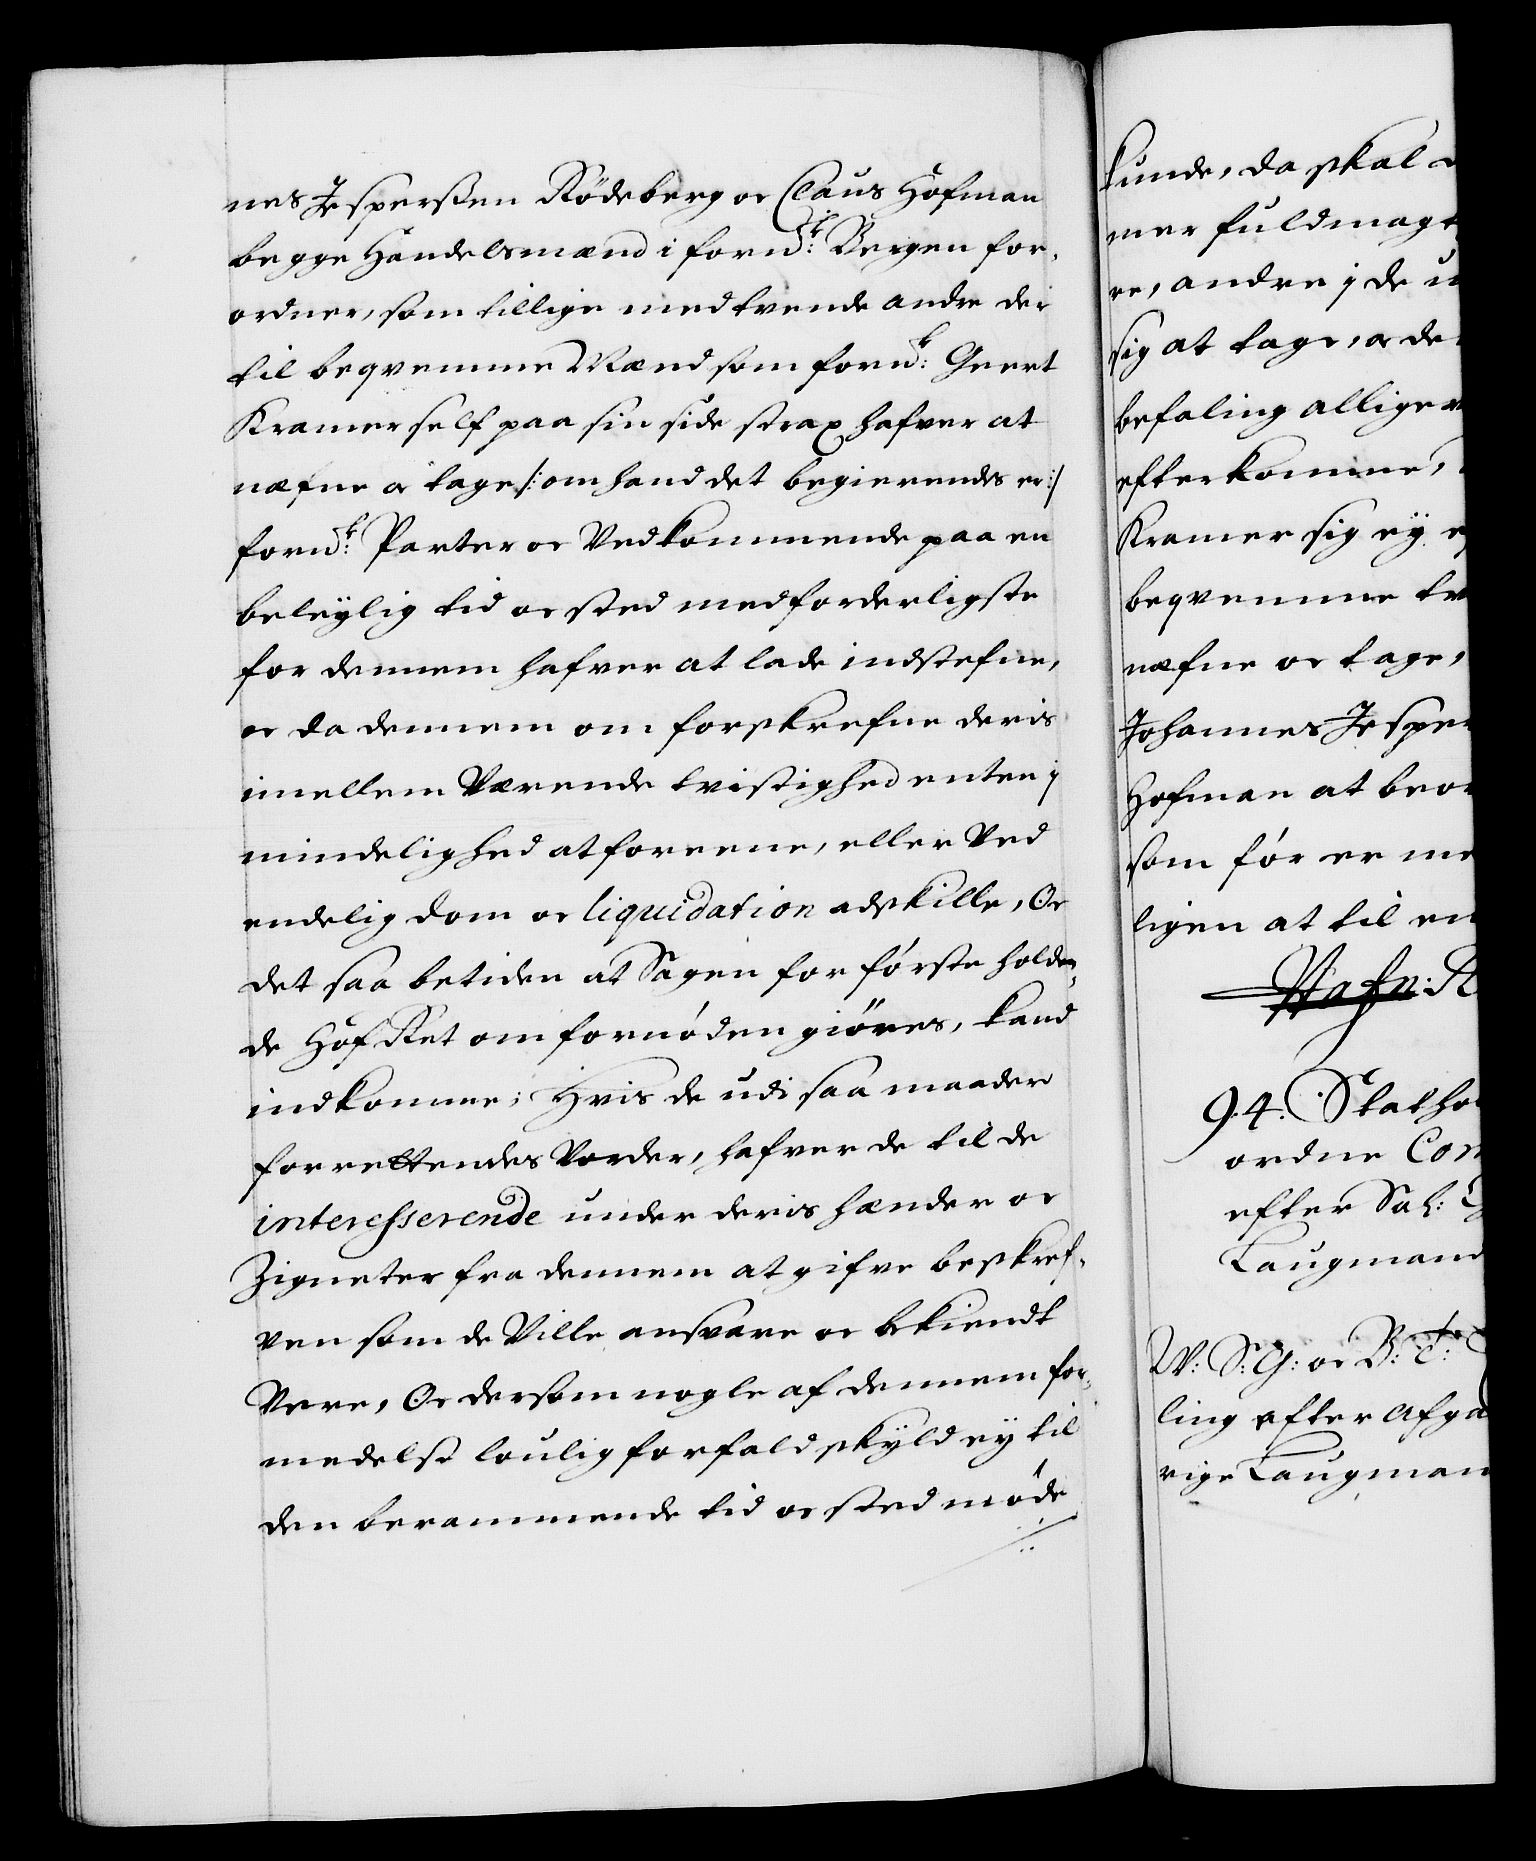 nes Jesperßen Rödeberg oc Claus Hofman
begge Handelsmænd i forn: Bergen for-
ordner, som tillige med tvende andre der
til beqvemme Mænd som forn: Geert
Kramer self paa sin side strax hafver at
næfne oc tage /: om hand det begierendes er :/
forn: Parter oc Vedkommende paa en
beleylig tid oc sted med forderligste
for dennem hafver at lade indstefne,
oc da dennem om forskrefne deris
imellem Værende tvistighed enten j
mindelighed at foreene, eller Ved
endelig dom oc liquidation adskille, Oc
det saa betiden at Sagen for første holden-
de HofRet om fornøden giöres, kand
indkomme; Hvis de udi saa maader
forrettendes Vorder, hafver de til de
interesserende under deris hænder oc
Zigneter fra dennem at gifve beskref-
ven som de Ville ansvare oc bekiendt
Vere, Oc dersom nogle af dennem for-
medelst loulig forfald skyld ey til
den berammende tid oc sted møde
kunde, da skal
mer fuldmagt
re, andre j de u
sig at tage, oc de
befaling allige
efterkomme,
Kramer sig ey e
beqvemme tv
næfne oc tage,
Johannes Jesper
Hofman at beor
som før er me
ligen at til en
Hafn: R
94. Stathol
ordne Com
efter Sal:
Laugmand
W: S: G: oc B: t:
ling efter Afga
rige Laugman